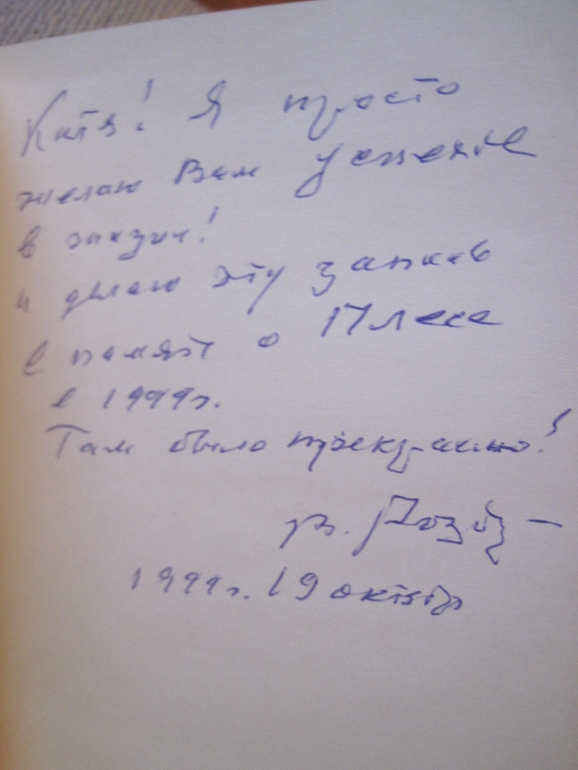 Катя! Я просто
желаю Вам успехов
в жизни!
и делаю эту запись
в память о Плесе
в 1999г.
Там было прекрасно!
В.
1999г. 19 октября